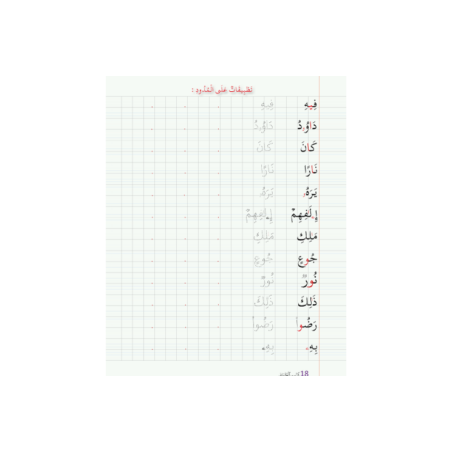 تطبيقات على المدود :
فِيهِ فِيهِ
دَاوُدُ دَاوُدُ
كَانَ كَانَ
نَارًا نَارًا
يَرَهُ يَرَهُ
مَلِكِ مَلِكِ
جُوعٍ جُوعٍ
نُورٌ نُورٌ
ذَلِكَ ذَلِكَ
رَضُوا رَضُوا
بِهِ بِهِ
18